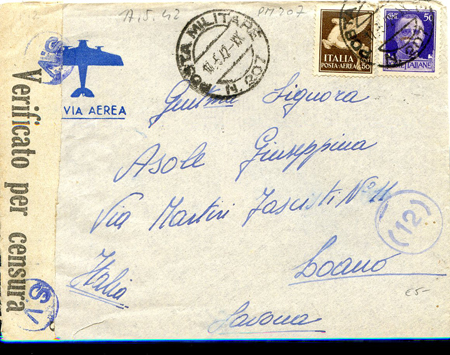 17.5.42
PM 207
POSTA MILITARE N. 207
17.5.42.XX
ITALIA
POSTA-AEREA
50
50
ITALIANE
VIA AEREA
Verificato per censura
Gentma Signora
Asole Giuseppina
Via Martiri Fascisti N° 11
(12)
Loano
Italia
Savona
€5-